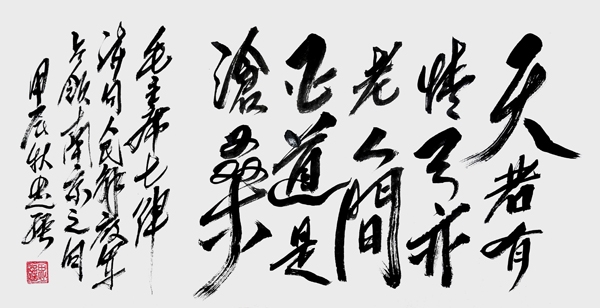 天若有
情天亦
老人間
正道是
滄桑
毛主席七律
人民解放軍
占領南京之句
甲辰秋